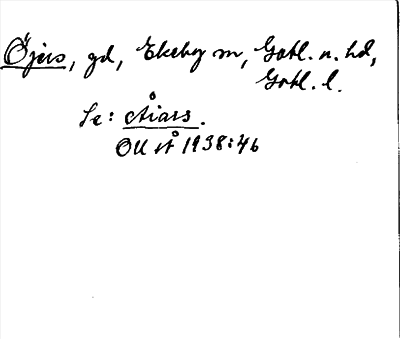 Öjers, gd, Ekeby sn, Gotl. n. hd,
Gotl. l.
Se: Åiars.
OU st 1938:46